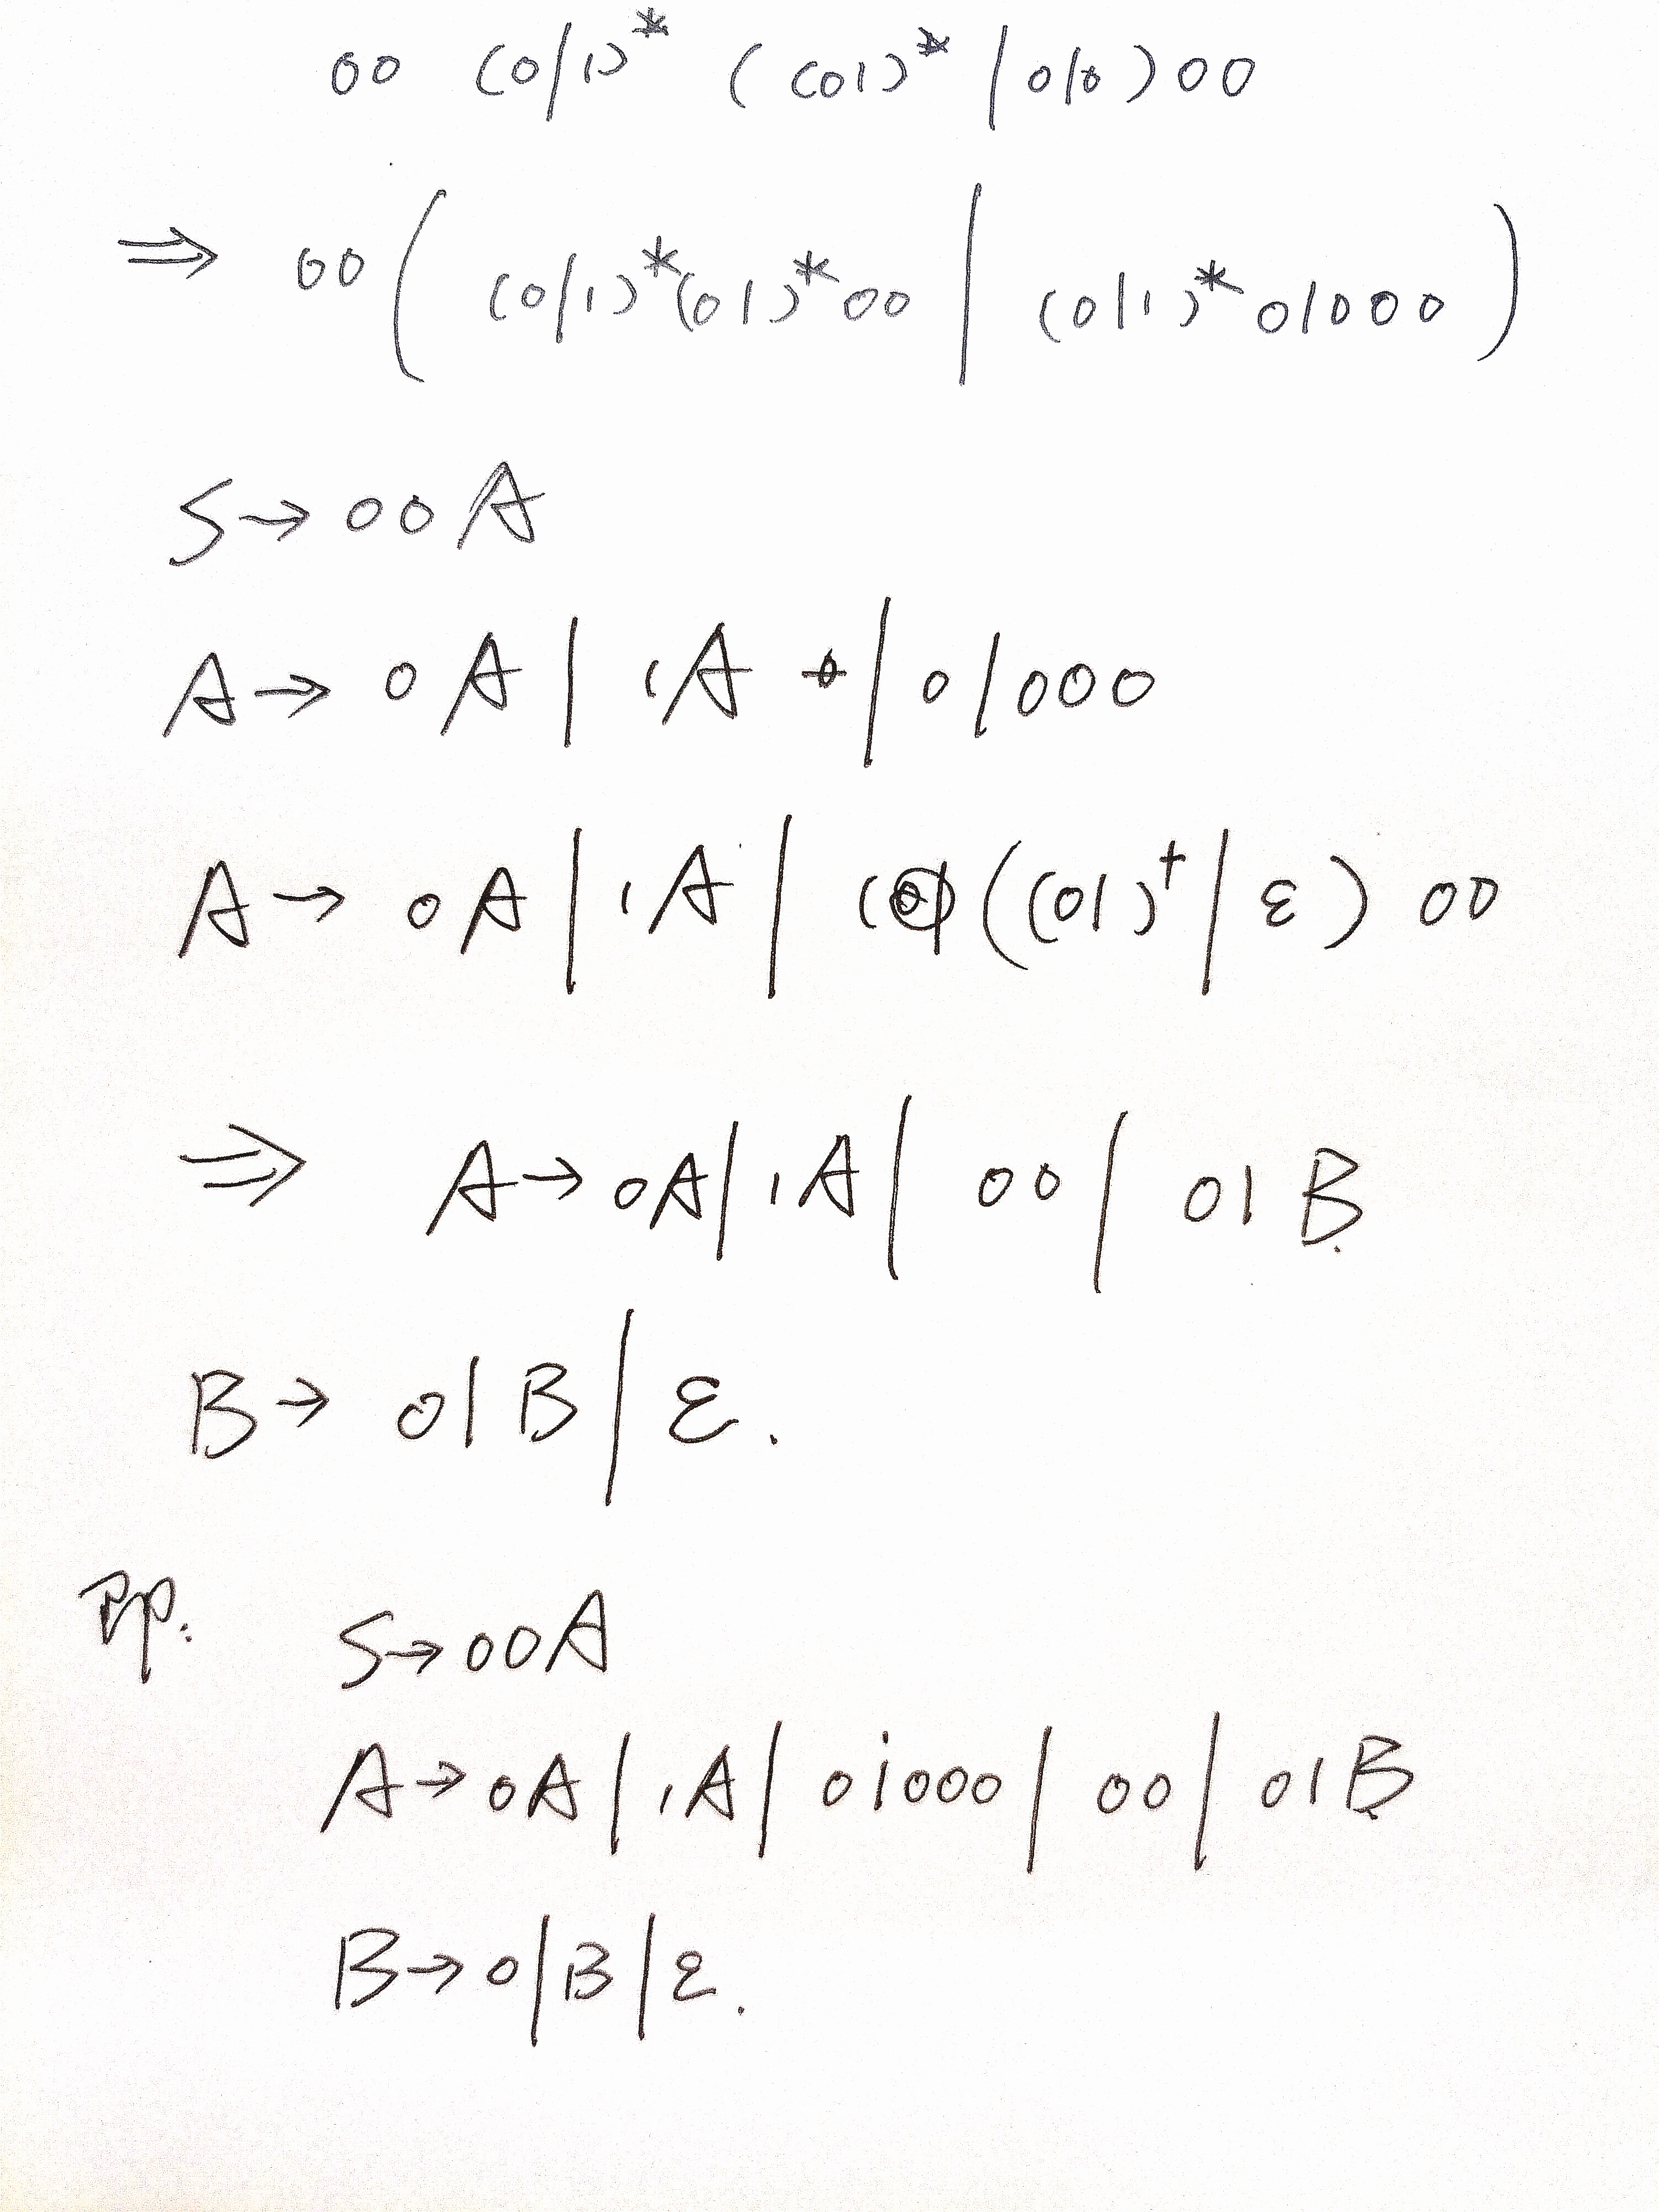 00 (0/1)* ((01)* | 010) 00
⇒ 00 ( (0/1)*(01)*00 | (0|1)*01000 )
S→00A
A→0A | 1A | 01000
A→0A | 1A | ((01)⁺ | ε) 00
⇒ A→0A | 1A | 00 | 01B
B→01B | ε.
即: S→00A
A→0A | 1A | 01000 | 00 | 01B
B→01B | ε.